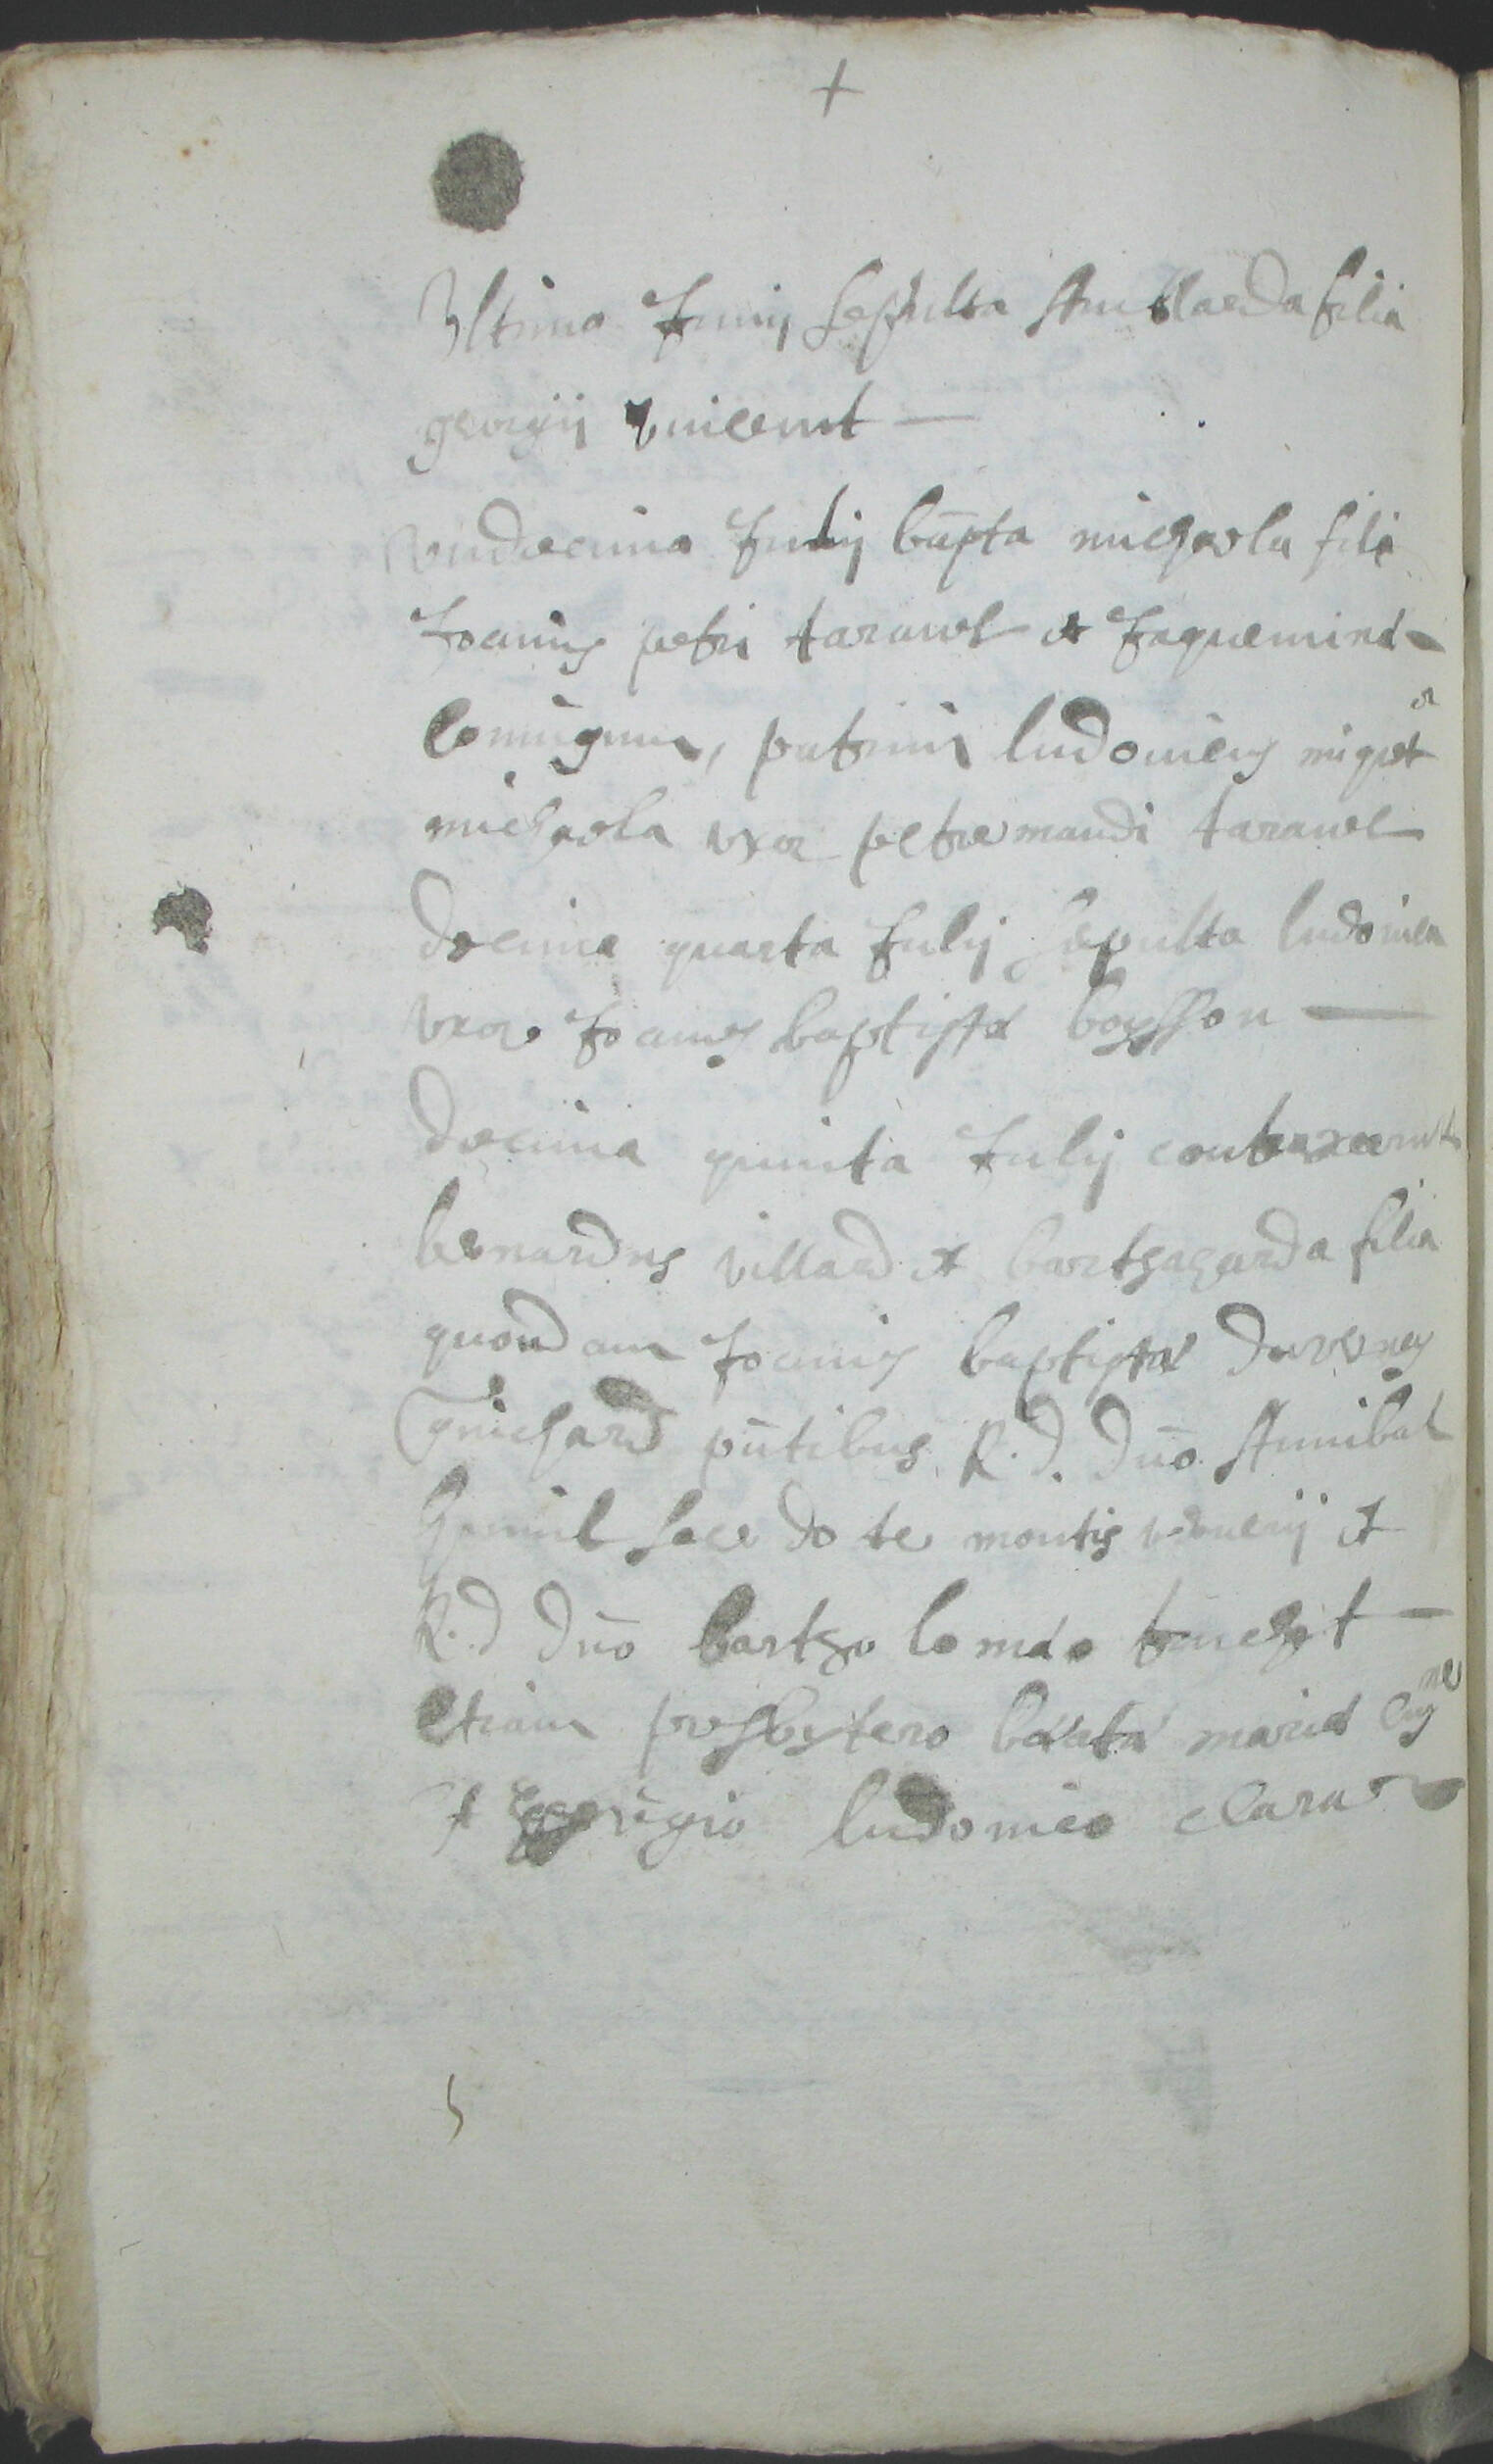 +
Vltima Junij sepulta Amblarda filia
georgij Vincent —
vndecima Julij bapta michaela filia
Joannis petri taravel et Jaquemina
comugniou, patrini ludovicus miget et
michaela vxor petremandi taravel
decima quarta Julij sepulta ludovica
vxor Joannis baptistæ boysson —
decima quinta Julij contraxerunt
bernardus villard et filia
quondam Joannis baptistæ duverney
Guichard pntibus R. d. dno Annibal
sacerdote montis et
R. d dno bartholomeo truchet —
etiam presbytero beatæ mariæ
et Egregio ludovico claraz